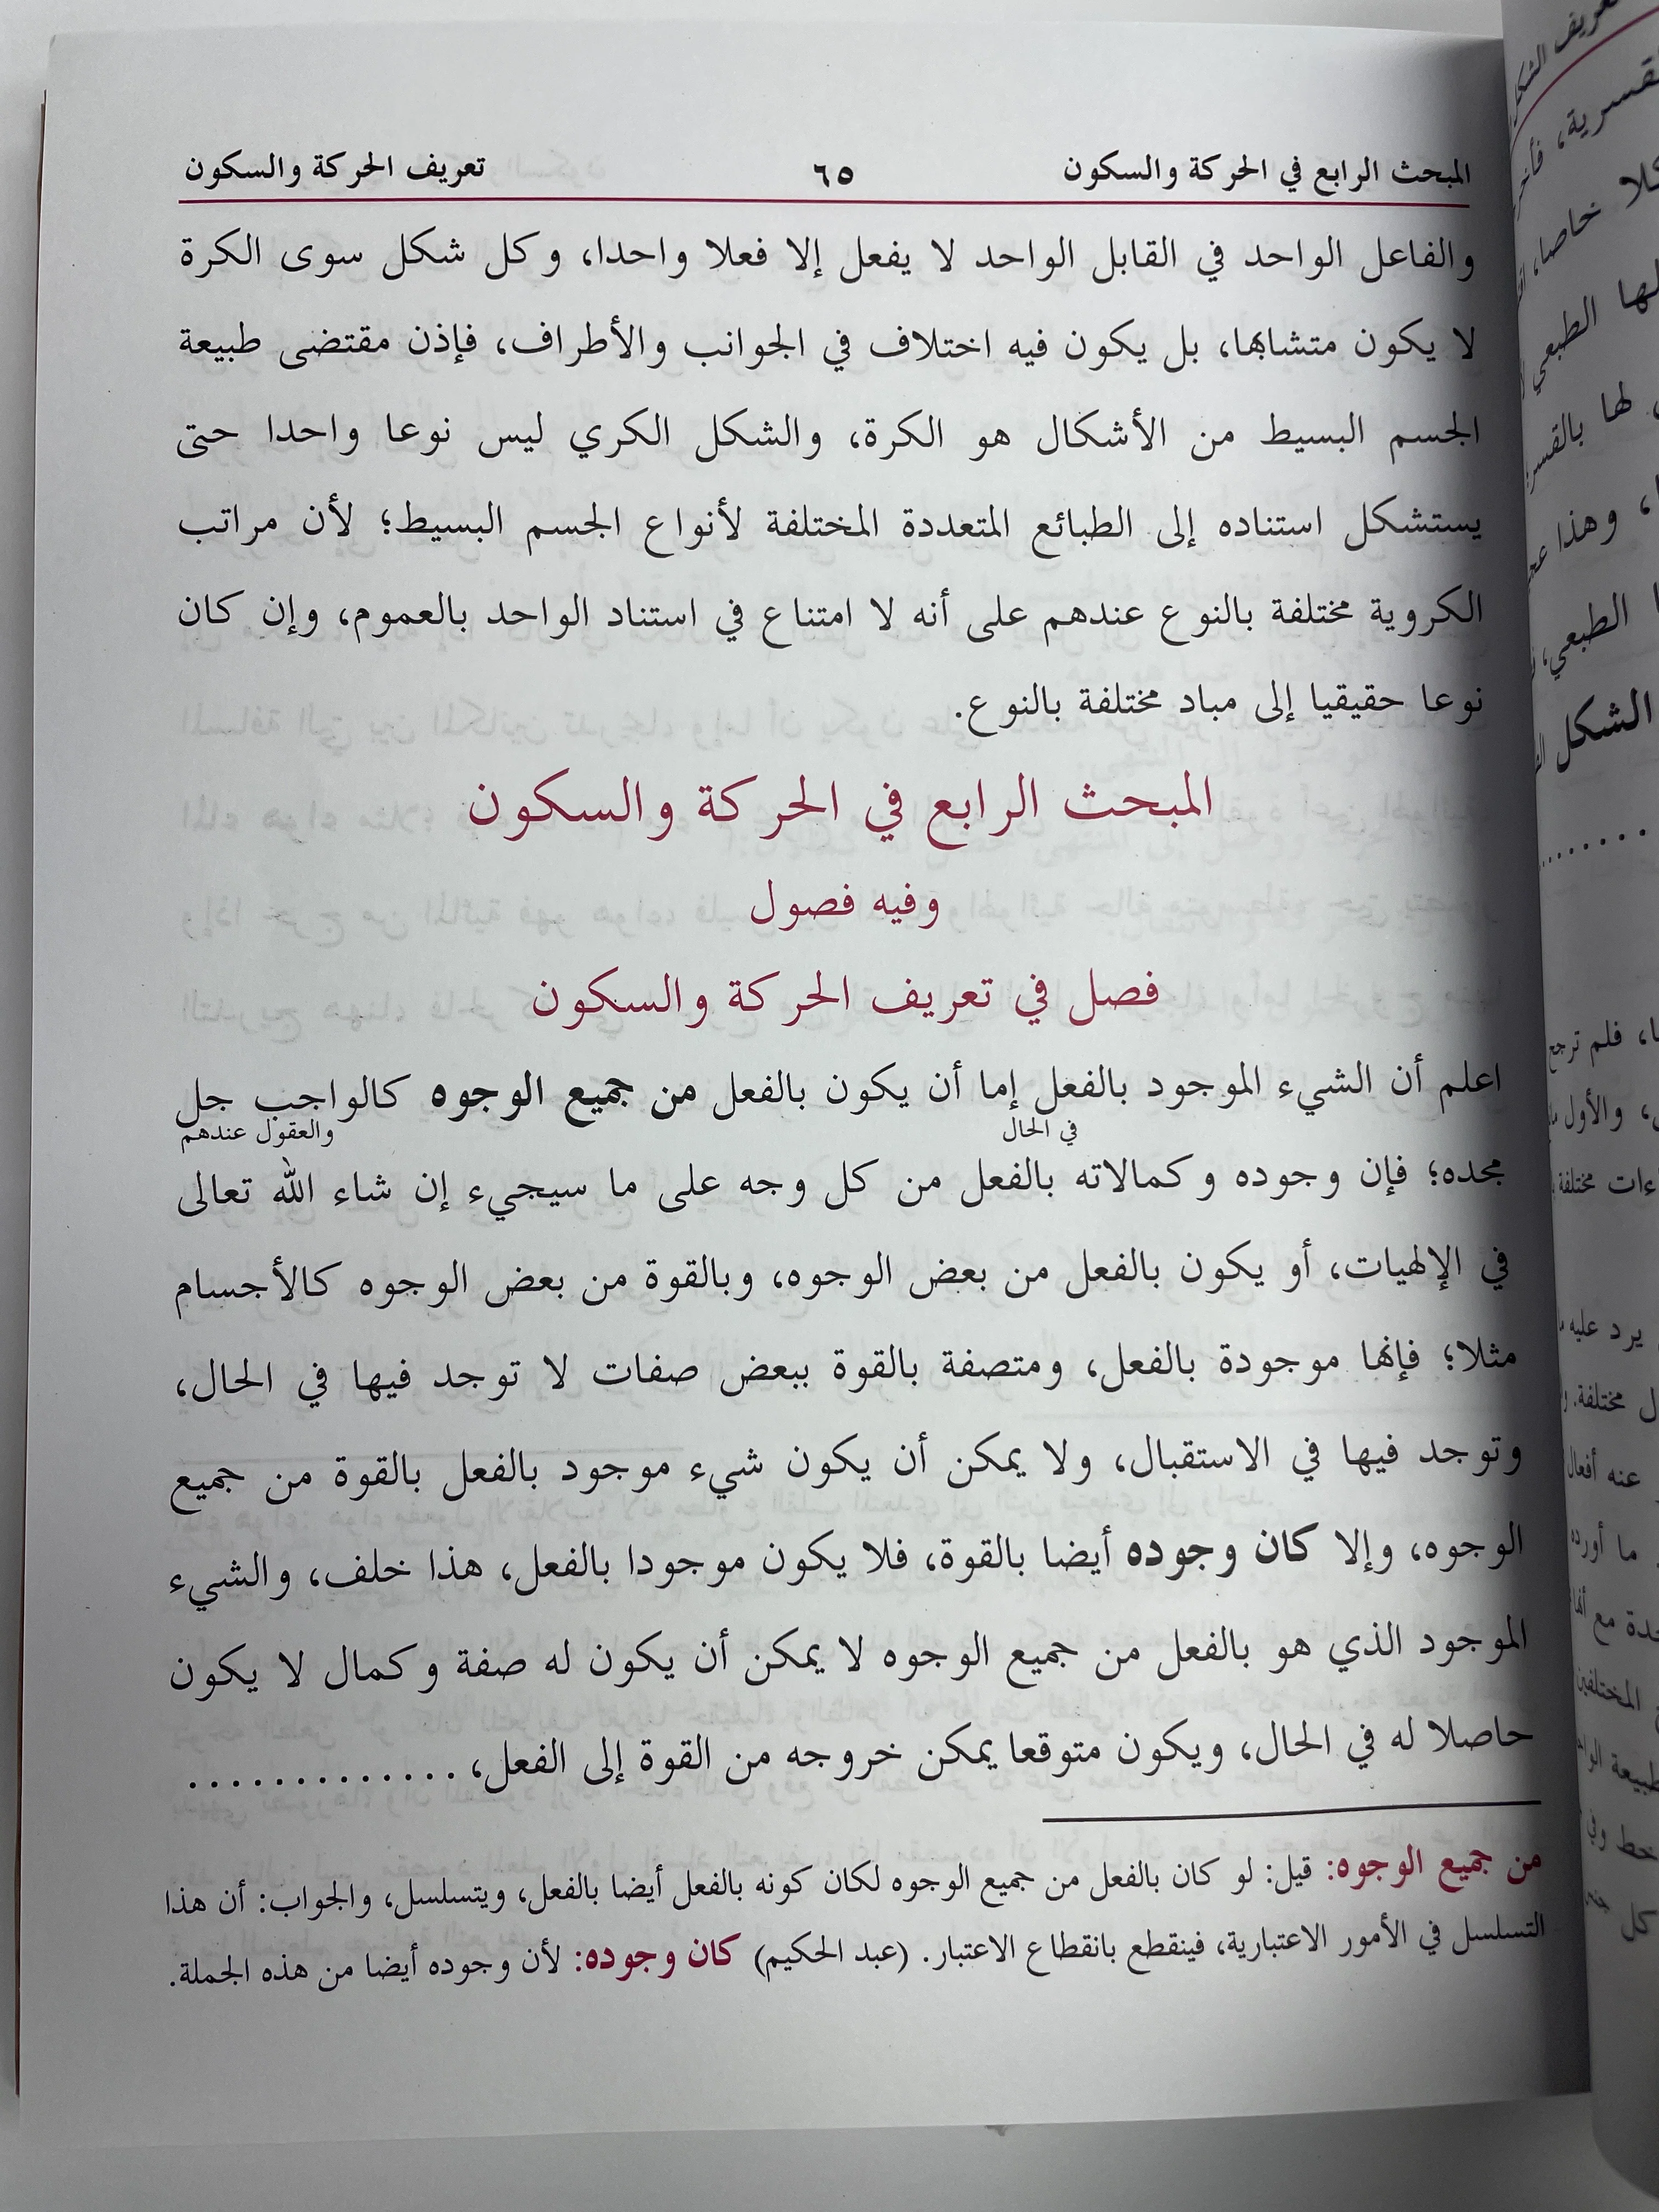 المبحث الرابع في الحركة والسكون ٦٥ تعريف الحركة والسكون
والفاعل الواحد في القابل الواحد لا يفعل إلا فعلا واحدا، وكل شكل سوى الكرة
لا يكون متشابها، بل يكون فيه اختلاف في الجوانب والأطراف، فإذن مقتضى طبيعة
الجسم البسيط من الأشكال هو الكرة، والشكل الكري ليس نوعا واحدا حتى
يستشكل استناده إلى الطبائع المتعددة المختلفة لأنواع الجسم البسيط؛ لأن مراتب
الكروية مختلفة بالنوع عندهم على أنه لا امتناع في استناد الواحد بالعموم، وإن كان
نوعا حقيقيا إلى مباد مختلفة بالنوع.
المبحث الرابع في الحركة والسكون
وفيه فصول
فصل في تعريف الحركة والسكون
اعلم أن الشيء الموجود بالفعل إما أن يكون بالفعل من جميع الوجوه كالواجب جل
في الحال والعقول عندهم
مجده؛ فإن وجوده وكمالاته بالفعل من كل وجه على ما سيجيء إن شاء الله تعالى
في الإلهيات، أو يكون بالفعل من بعض الوجوه، وبالقوة من بعض الوجوه كالأجسام
مثلا؛ فإنها موجودة بالفعل، ومتصفة بالقوة ببعض صفات لا توجد فيها في الحال،
وتوجد فيها في الاستقبال، ولا يمكن أن يكون شيء موجود بالفعل بالقوة من جميع
الوجوه، وإلا كان وجوده أيضا بالقوة، فلا يكون موجودا بالفعل، هذا خلف، والشيء
الموجود الذي هو بالفعل من جميع الوجوه لا يمكن أن يكون له صفة وكمال لا يكون
حاصلا له في الحال، ويكون متوقعا يمكن خروجه من القوة إلى الفعل، . . . . . . . . . . . . .
من جميع الوجوه: قيل: لو كان بالفعل من جميع الوجوه لكان كونه بالفعل أيضا بالفعل، ويتسلسل، والجواب: أن هذا
التسلسل في الأمور الاعتبارية، فينقطع بانقطاع الاعتبار. (عبد الحكيم) كان وجوده: لأن وجوده أيضا من هذه الجملة.